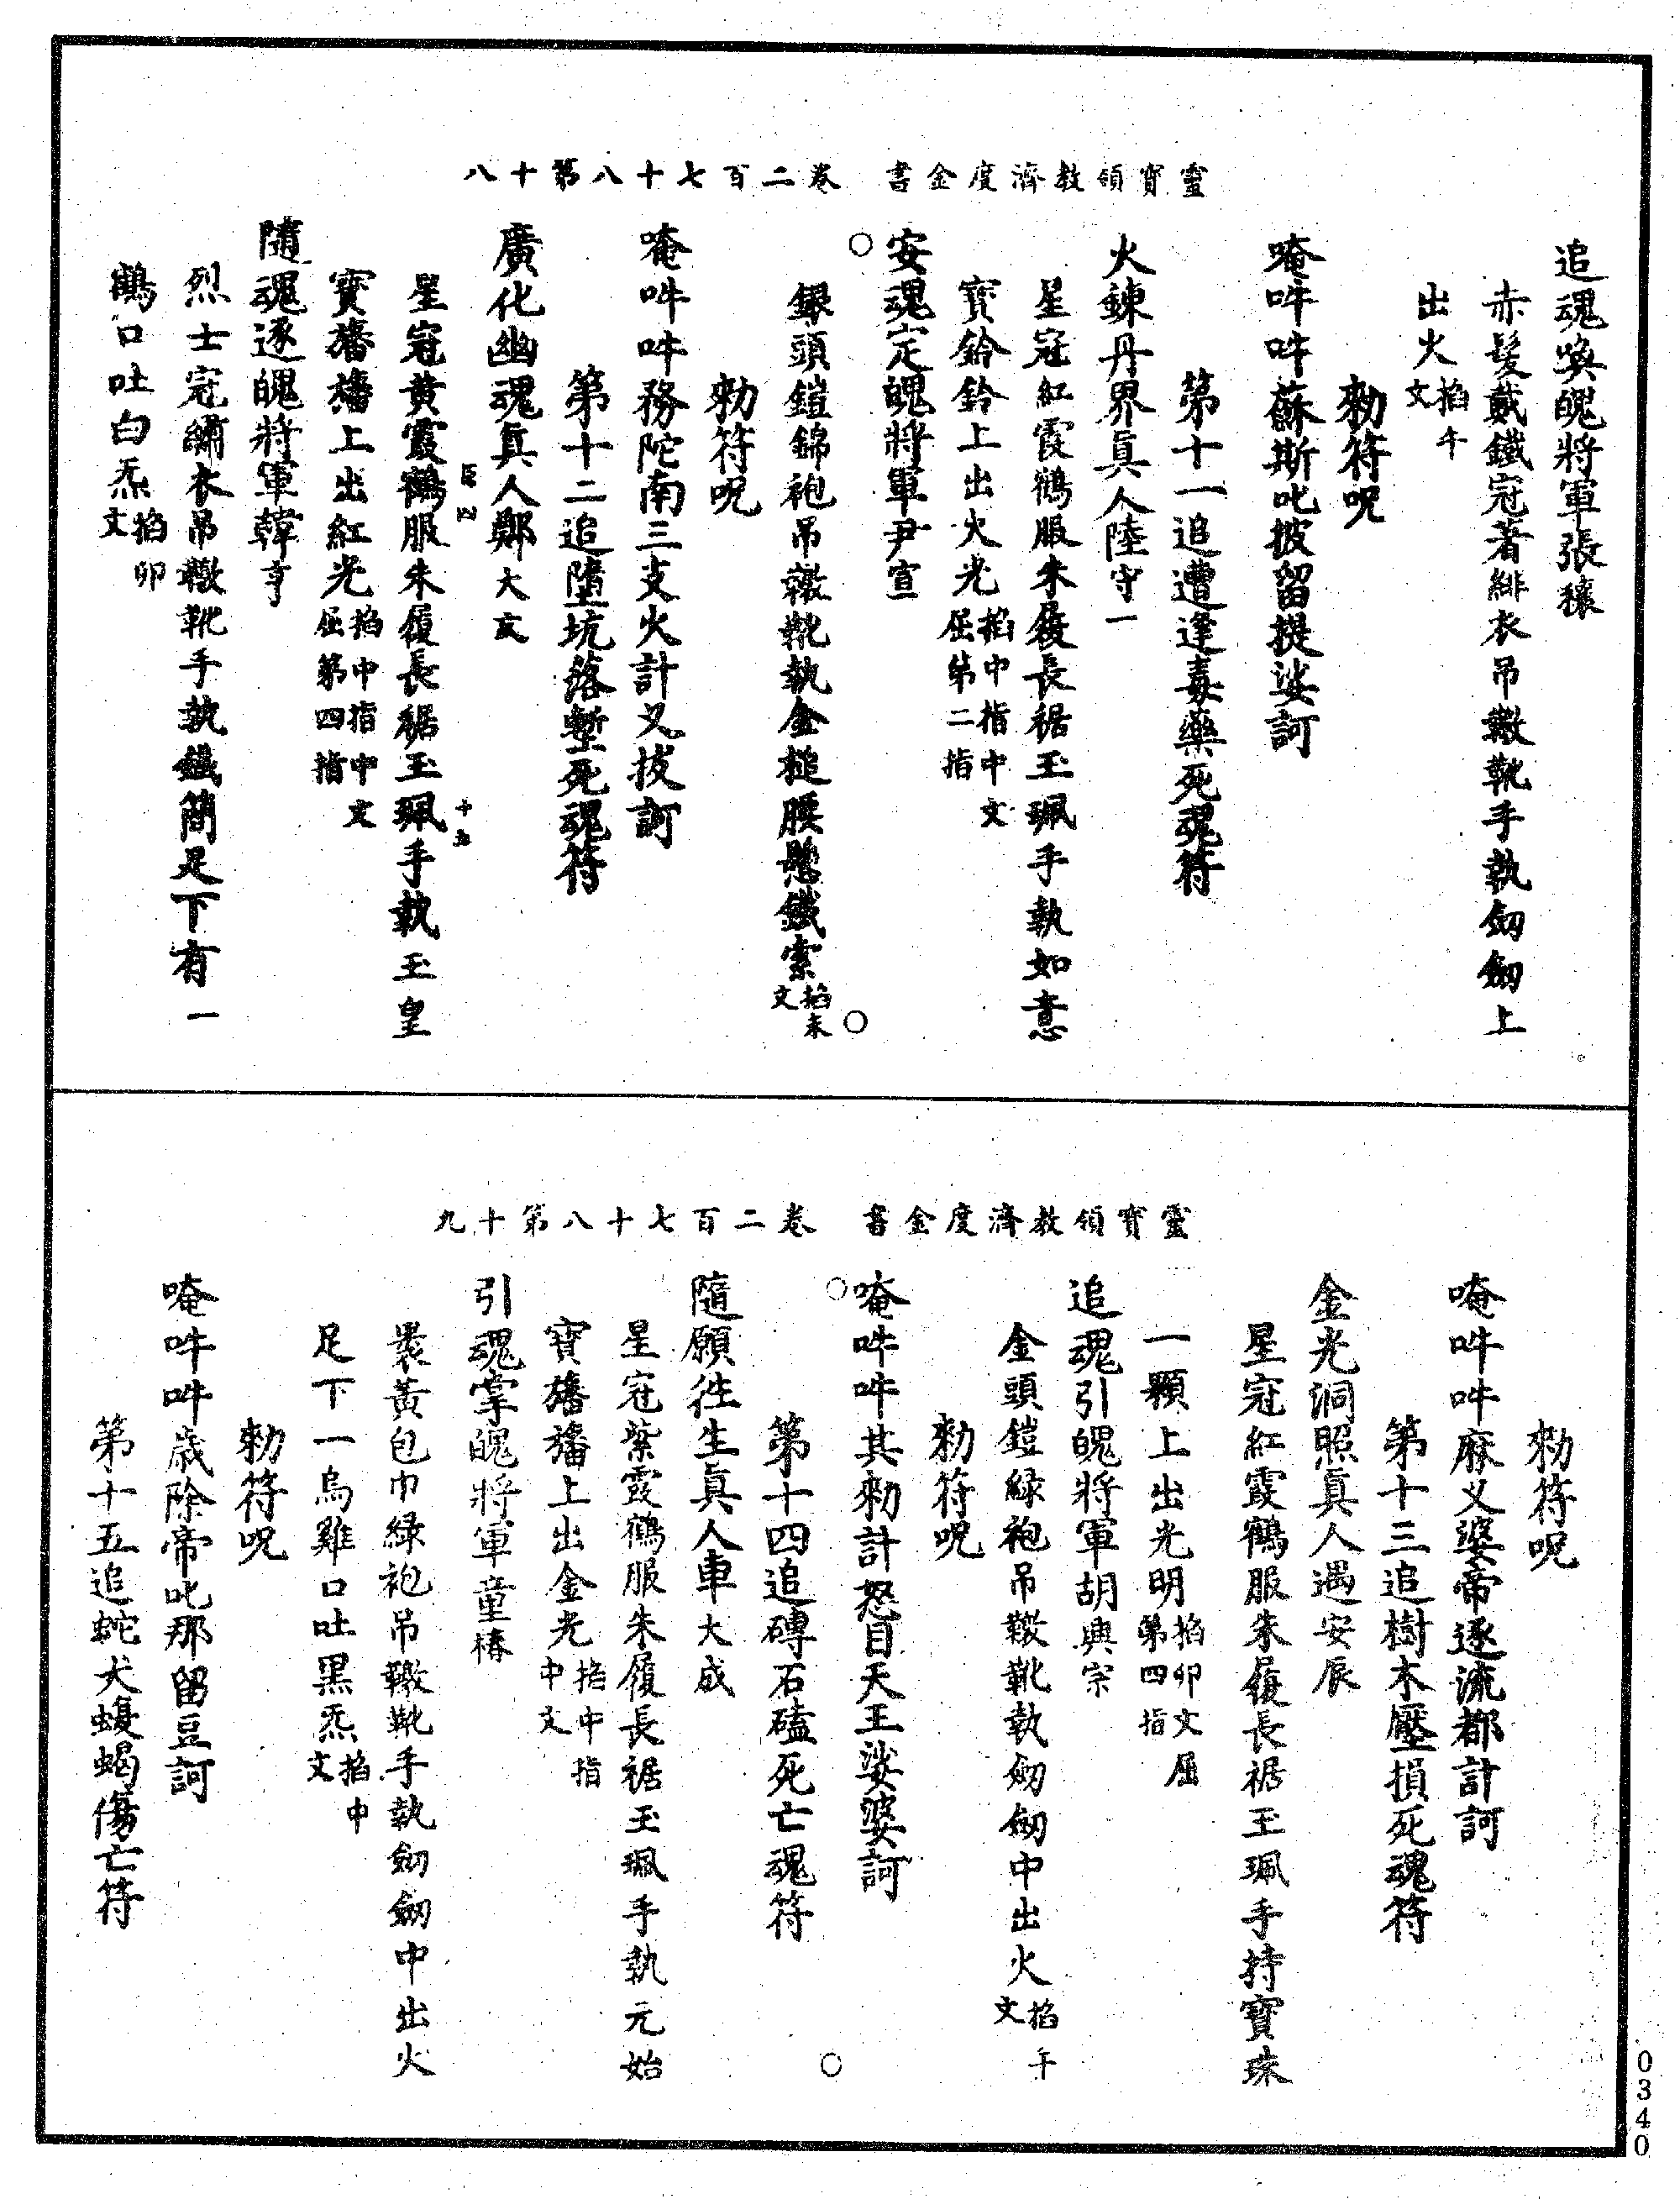 靈寶領教濟度金書　卷二百七十八第十八
追魂喚魄將軍張穰
赤髮戴鐵冠著緋衣吊䩫靴手執劒劒上
出火掐午文
勑符呪
唵吽吽蘇斯叱披留提娑訶
第十一追遭逢毒藥死魂符
火鍊丹界眞人陸守一
星冠紅霞鶴服朱履長裾玉珮手執如意
寶鈴鈴上出火光掐中指中文屈第二指
安魂定魄將軍尹宣
銀頭鎧錦袍吊䩫靴執金槌腰懸鐵索掐未文
勑符呪
唵吽吽務陀南三支火計义拔訶
第十二追墮坑落塹死魂符
廣化幽魂眞人鄭大亥
星冠黃霞鶴服朱履長裾玉珮手執玉皇
寶旛旛上出紅光掐中指中文屈第四指
隨魂逐魄將軍韓亨
烈士冠繡衣吊䩫靴手執鐵簡足下有一
鶴口吐白炁掐卯文
靈寶領教濟度金書　卷二百七十八第十九
勑符呪
唵吽吽麻义婆帝逐流都計訶
第十三追樹木壓損死魂符
金光洞照眞人遇安辰
星冠紅霞鶴服朱履長裾玉珮手持寶珠
一顆上出光明掐卯文屈第四指
追魂引魄將軍胡興宗
金頭鎧綠袍吊䩫靴執劒劒中出火掐午文
勑符呪
唵吽吽其勑計怒目天王娑婆訶
第十四追磚石磕死亡魂符
隨願往生眞人車大成
星冠紫霞鶴服朱履長裾玉珮手執元始
寶旛旛上出金光掐中指中文
引魂掌魄將軍童椿
裹黃包巾綠袍吊䩫靴手執劒劒中出火
足下一烏雞口吐黑炁掐中文
勑符呪
唵吽吽歲除帝叱那留豆訶
第十五追蛇犬蝮蝎傷亡符
0340